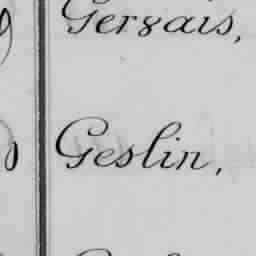 Gersais,
Geslin,